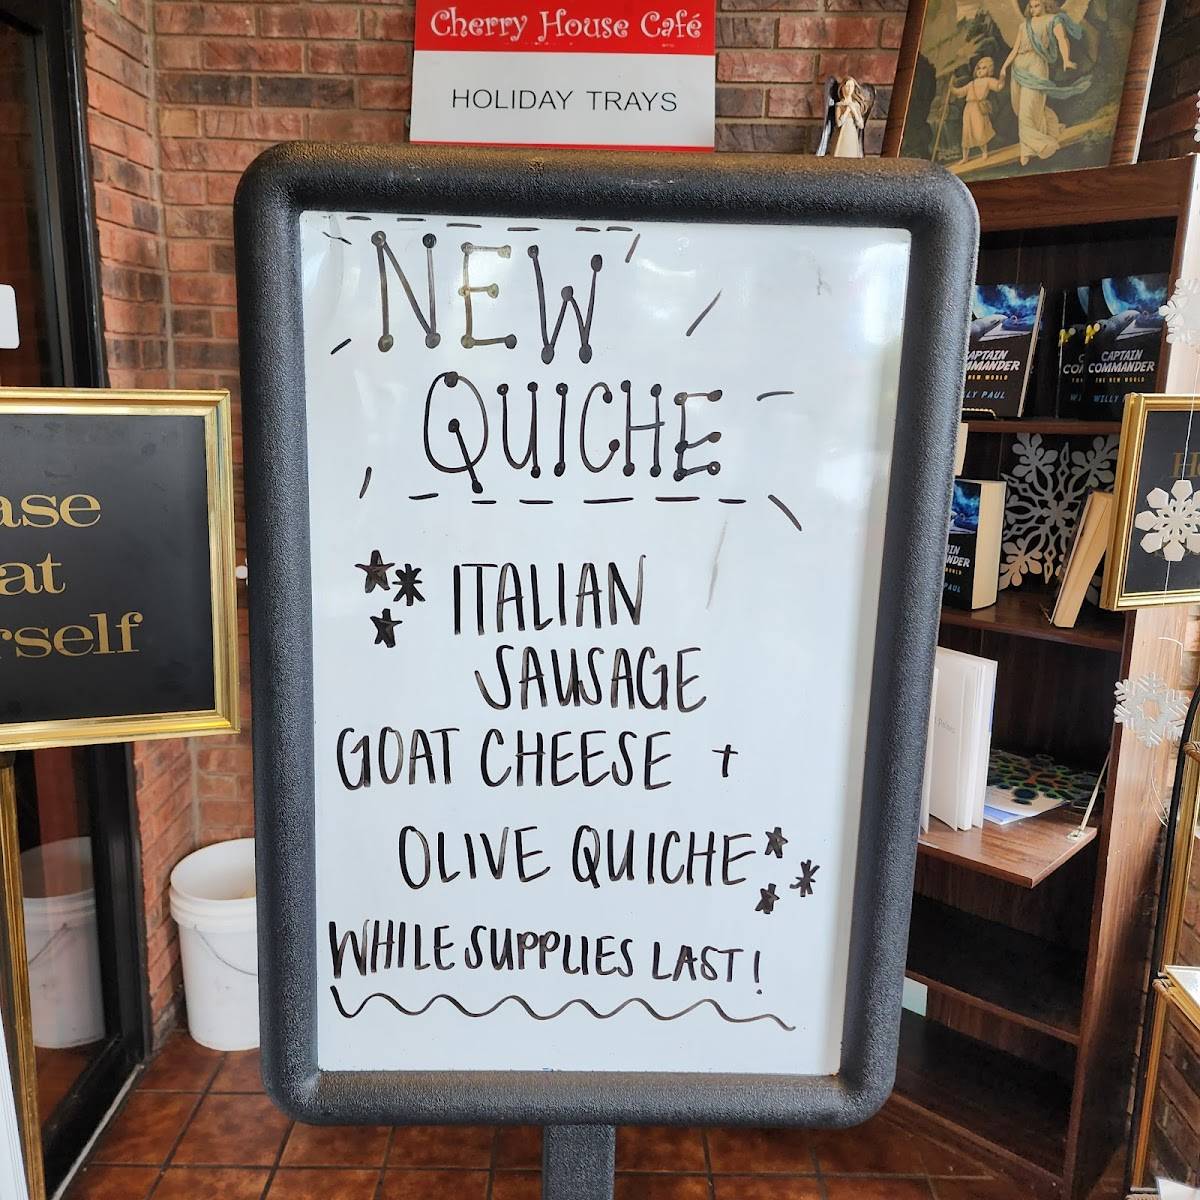 Cherry House Café
HOLIDAY TRAYS
NEW
QUICHE
ITALIAN
SAUSAGE
GOAT CHEESE +
OLIVE QUICHE
WHILE SUPPLIES LAST!
ase
at
rself
CAPTAIN
COMMANDER
THE NEW WORLD
WILLY
APTAIN
MANDER
NEW WORLD
LY PAUL
IN
NDER
PAUL
H